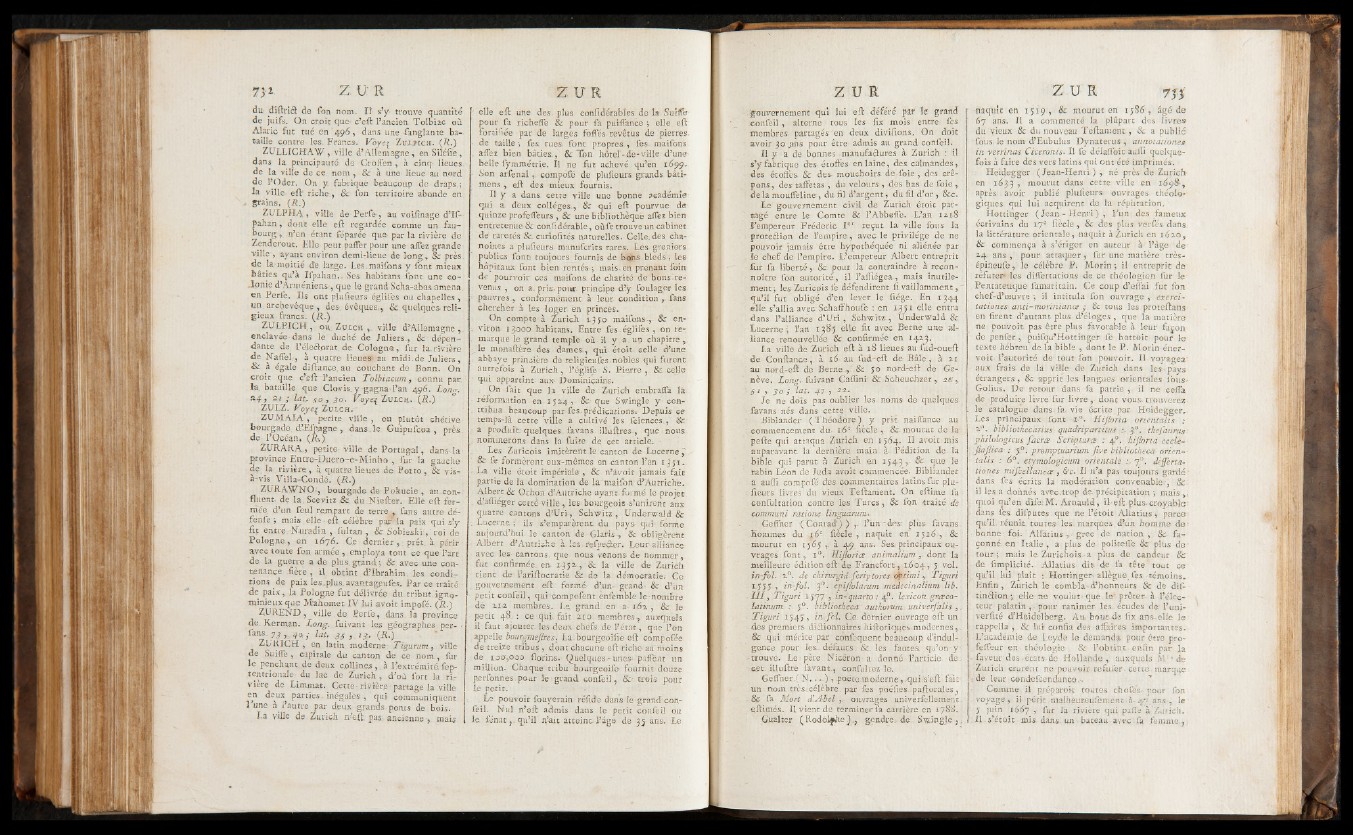 732 Z U R
du district de son nom. Il s'y trouve quantité
de juifs. On croit que c'est l'ancien Tolbiac où
Alaric fut tué en 496, dans une sanglante ba-
taille contre les Francs. Voyez ZULPICH. (R.)
ZULLICHAW, ville d'Allemagne, en Silésie,
dans la principauté de Crossen, à cinq lieues
de la ville de ce nom, & à une lieue au nord
de l'Oder. On y fabrique beaucoup de draps;
la ville est riche, & son territoire abonde en
grains. (R.)
ZULPHA, ville de Perse, au voisinage d'Is-
pahan, dont elle est regardée comme un faux-
bourg, n'en étant séparée que par la rivière de
Zenderout. Elle peut passer pour une assez grande
ville, ayant environ demi-lieue de long, & près
de la moitié de large. Les maisons y sont mieux
bâties qu'à Ispahan. Ses habitans sont une co-
lonie d'Arméniens, que le grand Scha-abas amena
en Perse. Ils ont plusieurs églises ou chapelles,
un archevêque, des évêques, & quelques reli-
gieux francs. (R.)
ZULPICH, ou ZULCH, ville d'Allemagne,
enclavée dans le duché de Juliers, & dépen-
dante de l'électorat de Cologne, sur la rivière
de Naffel, à quatre lieues au midi de Juliers,
& à égale distance au couchant de Bonn. On
croit que c'est l'ancien Tolbiacum, connu par
la bataille que Clovis y gagna l'an 496. Long.
24, 22; lat. 50, 30. Voyez ZULCH. (R.)
ZULZ. Voyez ZULCH.
ZUMAIA, petite ville, ou plutôt chétive
bourgade d'Espagne, dans le Guipuscoa, près
de l'Océan. (R.)
ZURARA, petite ville de Portugal, dans la
province Entre-Duero-e-Minho, sur la gauche
de la rivière, à quatre lieues de Porto, & vis-
à-vis Villa-Condà. (R.)
ZURAWNO, bourgade de Pokucie, au con-
fluent de la Scevitz & du Niester. Elle est fer-
mée d'un seul rempart de terre, sans autre dé-
fense; mais elle est célèbre par la paix qui s'y
fit entre Nuradin, sultan, & Sobieski, roi de
Pologne, en 1676. Ce dernier, prêt à périr
avec toute son armée, employa tout ce que l'art
de la guerre a de plus grand; & avec une con-
tenance fière, il obtint d'Ibrahim les condi-
tions de paix les plus avantageuses. Par ce traité
de paix, la Pologne fut délivrée du tribut igno-
minieux que Mahomet IV lui avoit imposé. (R.)
ZUREND, ville de Perse, dans la province
de Kerman. Long. suivant les géographes per-
sans 73, 40; lat. 33, 13. (R.)
ZURICH, en latin moderne Tigurum, ville
de Suisse, capitale du canton de ce nom, sur
le penchant de deux collines, à l'extrémité sep-
tentrionale du lac de Zurich, d'où sort la ri-
vière de Limmat. Cette rivière partage la ville
en deux parties inégales, qui communiquent
l'une à l'autre par deux grands ponts de bois.
La ville de Zurich n'est pas ancienne, mais
Z U R
elle est une des plus considérables de la Suisse
pour sa richesse & pour sa puissance; elle est
fortifiée par de larges fossés revêtus de pierres
de taille; ses rues sont propres, ses maisons
assez bien bâties, & son hôtel-de-ville d'une
belle symmétrie. Il ne fut achevé qu'en 1699.
Son arsenal, composé de plusieurs grands bâti-
mens, est des mieux fournis.
Il y a dans cette ville une bonne académie
qui a deux collèges, & qui est pourvue de
quinze professeurs, & une bibliothèque assez bien
entretenue & considérable, où se trouve un cabinet
de raretés & curiosités naturelles. Celle des cha-
noines a plusieurs manuscrits rares. Les greniers
publics sont toujours fournis de bons bleds; les
hôpitaux sont bien rentés; mais en prenant soin
de pourvoir ces maisons de charité de bons re-
venus, on a pris pour principe d'y soulager les
pauvres, conformément à leur condition, sans
chercher à les loger en princes.
On compte à Zurich 1350 maisons, & en-
viron 13000 habitans. Entre ses églises, on re-
marque le grand temple où il y a un chapitre,
le monastère des dames, qui étoit celle d'une
abbaye princière de religieuses nobles qui furent
autrefois à Zurich, l'église S. Pierre, & celle
qui appartint aux Dominicains.
On sait que la ville de Zurich embrassa la
réformation en 1524, & que Swingle y con-
tribua beaucoup par ses prédications. Depuis ce
temps-là cette ville a cultivé les sciences, &
a produit quelques savans illustres, que nous
nommerons dans la suite de cet article.
Les Zuricois imitèrent le canton de Lucerne,
& se formèrent eux-mêmes en canton l'an 1351.
La ville étoit impériale, & n'avoit jamais fait
partie de la domination de la maison d'Autriche.
Albert & Othon d'Autriche ayant formé le projet
d'assiéger cette ville, les bourgeois s'unirent aux
quatre cantons d'Uri, Schwitz, Underwald &
Lucerne; ils s'emparèrent du pays qui forme
aujourd'hui le canton de Glaris, & obligèrent
Albert d'Autriche à les respecter. Leur alliance
avec les cantons que nous venons de nommer,
fut confirmée en 1352, & la ville de Zurich
tient de l'aristocratie & de la démocratie. Ce
gouvernement est formé d'un grand & d'un
petit conseil, qui composent ensemble le nombre
de 212 membres. Le grand en a 162, & le
petit 48: ce qui fait 210 membres, auxquels
il faut ajouter les deux chefs de l'état, que l'on
appelle bourguestres. La bourgeoisie est composée
de treize tribus, dont chacune est riche au moins
de 100,000 florins. Quelques-unes passent un
million. Chaque tribu bourgeoise fournit douze
personnes pour le grand conseil, & trois pour
le petit.
Le pouvoir souverain réside dans le grand con-
seil. Nul n'est admis dans le petit conseil ou
le sénat, qu'il n'ait atteint l'âge de 35 ans. Le
Z U R
gouvernement qui lui est déféré par le grand
conseil, alterne tous les six mois entre ses
membres partagés en deux divisions. On doit
avoir 30 ans pour être admis au grand conseil.
Il y a de bonnes manufactures à Zurich: il
s'y fabrique des étoffes en laine, des calmandes,
des étoffes & des mouchoirs de soie, des crê-
pons, des taffetas, du velours, des bas de soie,
de la mousseline, du fil d'argent, du fil d'or, &c.
Le gouvernement civil de Zurich étoit par-
tagé entre le Comte & l'Abbesse. L'an 1218
l'empereur Fréderic Ier reçut la ville sous la
protection de l'empire, avec le privilège de ne
pouvoir jamais être hypothéquée ni aliénée par
le chef de l'empire. L'empereur Albert entreprit
sur sa liberté, & pour la contraindre à recon-
noître son autorité, il l'assiégea, mais inutile-
ment; les Zuricois se défendirent si vaillamment,
qu'il fut obligé d'en lever le siége. En 1344
elle s'allia avec Schaffhouse: en 1351 elle entra
dans l'alliance d'Uri, Schwitz, Underwald &
Lucerne; l'an 1385 elle fit avec Berne une al-
liance renouvellée & confirmée en 1423.
La ville de Zurich est à 18 lieues au sud-ouest
de Constance, à 16 au sud-est de Bâle, à 21
au nord-est de Berne, & 50 nord-est de Ge-
nève. Long. suivant Cassini & Scheuchzer, 26,
51, 30; lat. 47, 22.
Je ne dois pas oublier les noms de quelques
savans nés dans cette ville.
Bibliander (Théodore) y prit naissance au
commencement du 16e siècle, & mourut de la
peste qui attaqua Zurich en 1564. Il avoit mis
auparavant la dernière main à l'édition de la
bible qui parut à Zurich en 1543, & que le
rabin Léon de Juda avoit commencée. Bibliander
a aussi composé des commentaires latins sur plu-
sieurs livres du vieux Testament. On estime sa
consultation contre les Turcs, & son traité de
communi ratione linguarum.
Gessner (Conrad), l'un des plus savans
hommes du 16e siècle, naquit en 1516, &
mourut en 1565, à 49 ans. Ses principaux ou-
vrages sont, 1°. Historiæ animalium, dont la
meilleure édition est de Francfort, 1604, 5 vol.
in-fol. 2°. de chirurgiâ scriptores optimi, Tiguri
1555, in-fol. 3°. epistolarum medicinalium lib.
III, Tiguri 1577, in-quarto: 4°. lexicon græco-
latinum: 5°. bibliotheca authorum universalis,
Tiguri 1545, in-fol. Ce dernier ouvrage est un
des premiers dictionnaires historiques modernes,
& qui mérite par conséquent beaucoup d'indul-
gence pour les défauts & les fautes qu'on y
trouve. Le père Nicéron a donné l'article de
cet illustre savant, consultez le.
Gessner (N....), poëte moderne, qui s'est fait
un nom très-célèbre par ses poésies pastorales,
& sa Mort d'Abel, ouvrages universellement
estimés. Il vient de terminer sa carrière en 1788.
Gualter (Rodolphe), gendre de Swingle,
Z U R 733
naquit en 1519, & mourut en 1586, âgé de
67 ans. Il a commenté la plupart des livres
du vieux & du nouveau Testament, & a publié
sous le nom d'Eubulus Dynaterus, annotationes
in verrinas Ciceronis. Il se délassoit aussi quelque-
fois à faire des vers latins qui ont été imprimés.
Heidegger (Jean-Henri), né près de Zurich
en 1633, mourut dans cette ville en 1698,
après avoir publié plusieurs ouvrages théolo-
giques qui lui acquirent de la réputation.
Hottinger (Jean-Henri), l'un des fameux
écrivains du 17e siècle, & des plus versés dans
la littérature orientale, naquit à Zurich en 1620,
& commença à s'ériger en auteur à l'âge de
24 ans, pour attaquer, sur une matière très-
épineuse, le célèbre P. Morin; il entreprit de
réfuter les dissertations de ce théologien sur le
Pentateuque samaritain. Ce coup d'essai fut son
chef-d'œuvre; il intitula son ouvrage, exerci-
tationes anti-morinianæ; & tous les protestans
en firent d'autant plus d'éloges, que la matière
ne pouvoit pas être plus favorable à leur façon
de penser, puisqu'Hottinger se battoit pour le
texte hébreu de la bible, dont le P. Morin éner-
voit l'autorité de tout son pouvoir. Il voyagea
aux frais de la ville de Zurich dans les pays
étrangers, & apprit les langues orientales sous
Golius. De retour dans sa patrie, il ne cessa
de produire livre sur livre, dont vous trouverez
le catalogue dans sa vie écrite par Heidegger.
Les principaux sont 1°. Historia orientalis:
2°. bibliothecarius quadripartitus: 3°. thesaurus
philologicus sacræ Scripturæ: 4°. historia eccle-
siastica: 5°. promptuarium sive bibliotheca orien-
talis: 6°. etymologicum orientale: 7°. disserta-
tiones miscellaneæ, &c. Il n'a pas toujours gardé
dans ses écrits la modération convenable, &
il les a donnés avec trop de précipitation; mais,
quoi qu'en dise M. Arnauld, il est plus croyable
dans ses disputes que ne l'étoit Allatius, parce
qu'il réunit toutes les marques d'un homme de
bonne foi. Allatius, grec de nation, & fa-
çonné en Italie, a plus de politesse & plus de
tour; mais le Zurichois a plus de candeur &
de simplicité. Allatius dit de sa tête tout ce
qu'il lui plaît; Hottinger allègue ses témoins.
Enfin, Zurich le combla d'honneurs & de dis-
tinction; elle ne voulut que le prêter à l'élec-
teur palatin, pour ranimer les études de l'uni-
versité d'Heidelberg. Au bout de six ans elle le
rappella, & lui confia des affaires importantes.
L'académie de Leyde le demanda pour être pro-
fesseur en théologie & l'obtint enfin par la
faveur des états de Hollande, auxquels MM. de
Zurich crurent ne pouvoir refuser cette marque
de leur condescendance.
Comme il préparoit toutes choses pour son
voyage, il périt malheureusement à 47 ans, le
5 juin 1667, sur la rivière qui passe à Zurich.
Il s'étoit mis dans un bateau avec sa femme,